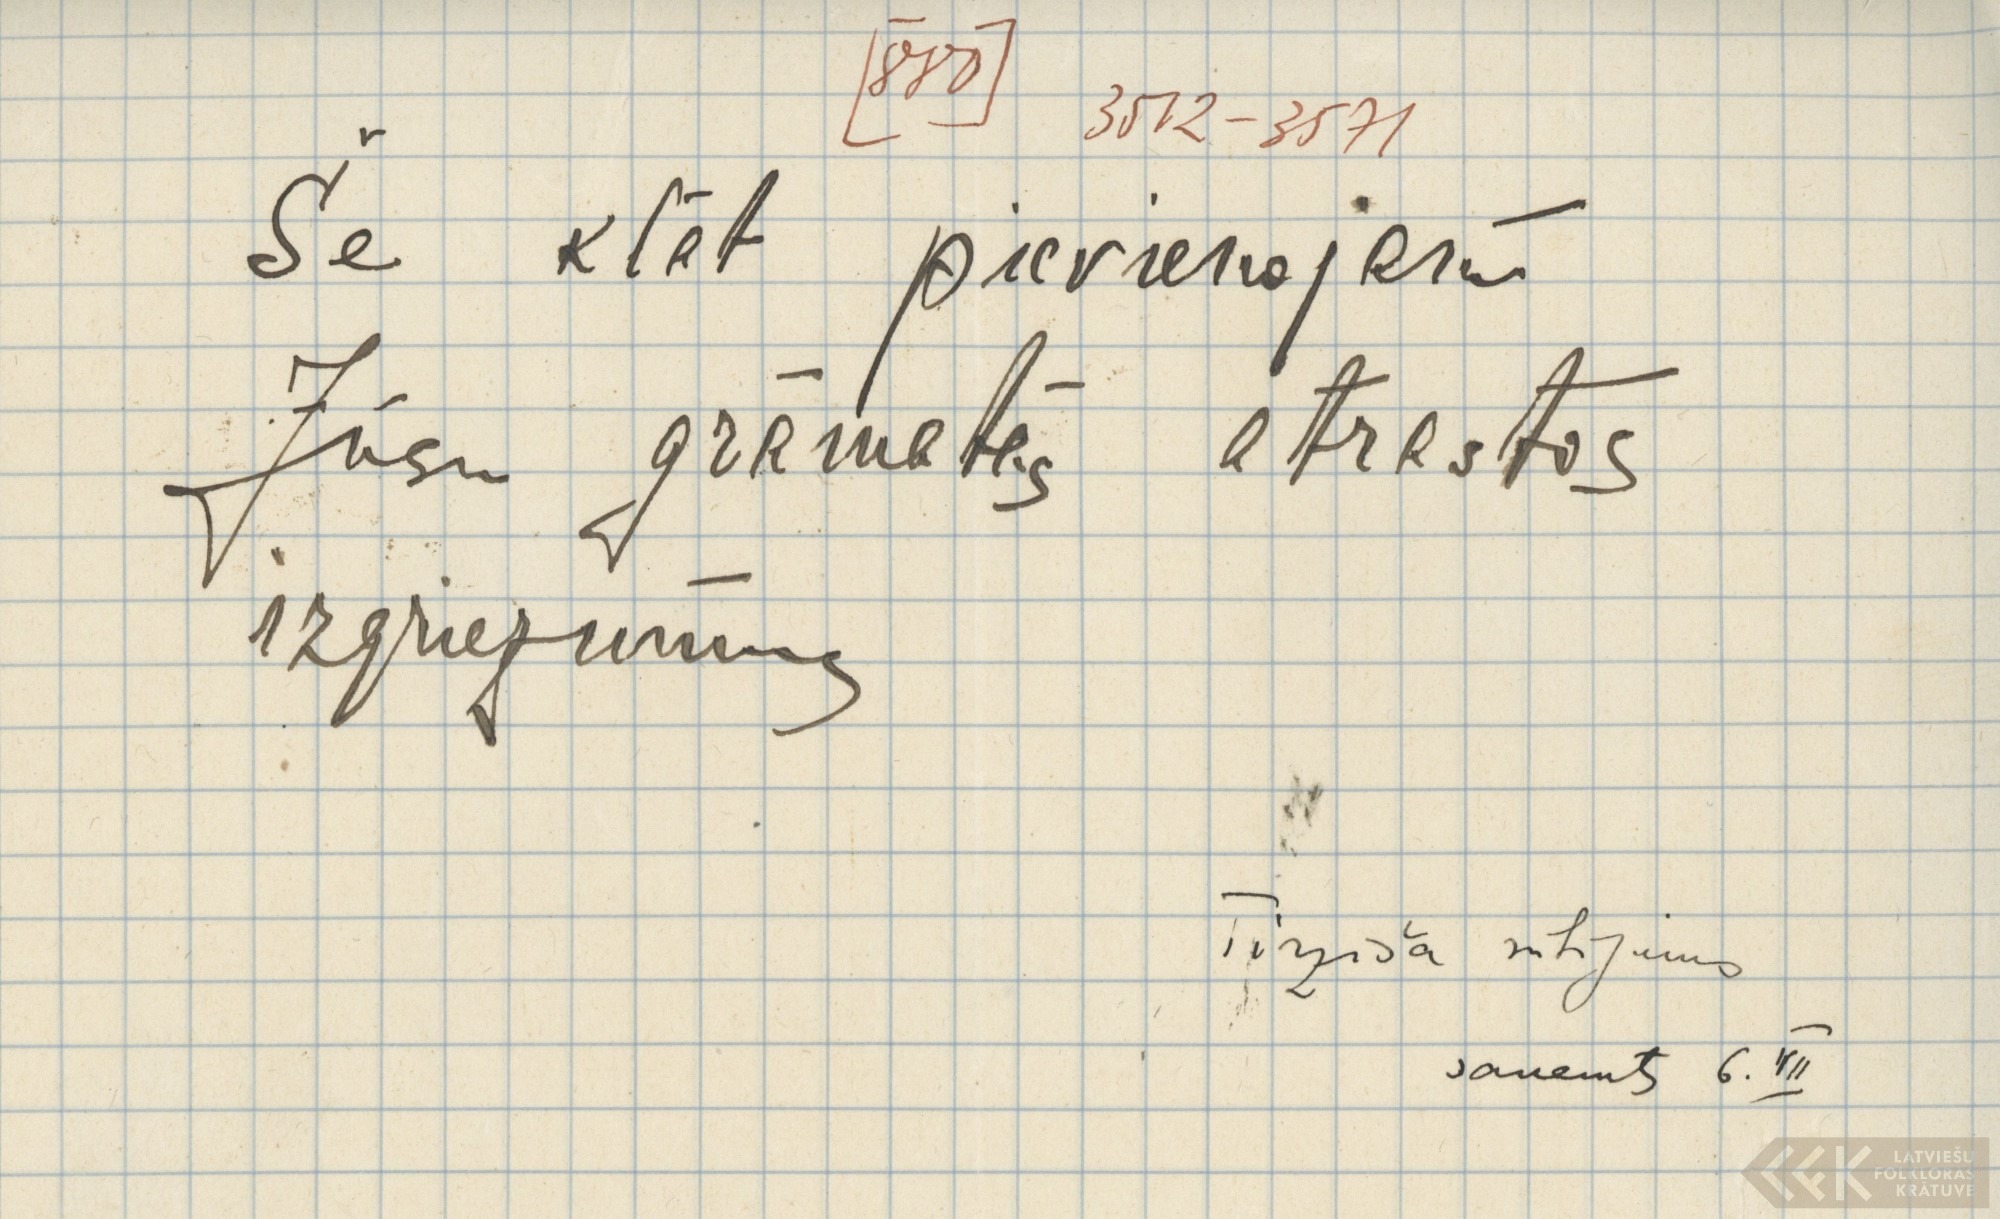 [880] 3512-3571
Še klāt pievienojam
Jūsu grāmatās atrastos
izgriezumus
Tirziša sūtijums
saņemts 6. VII
LATVIEŠU
FOLKLORAS
KRĀTUVE